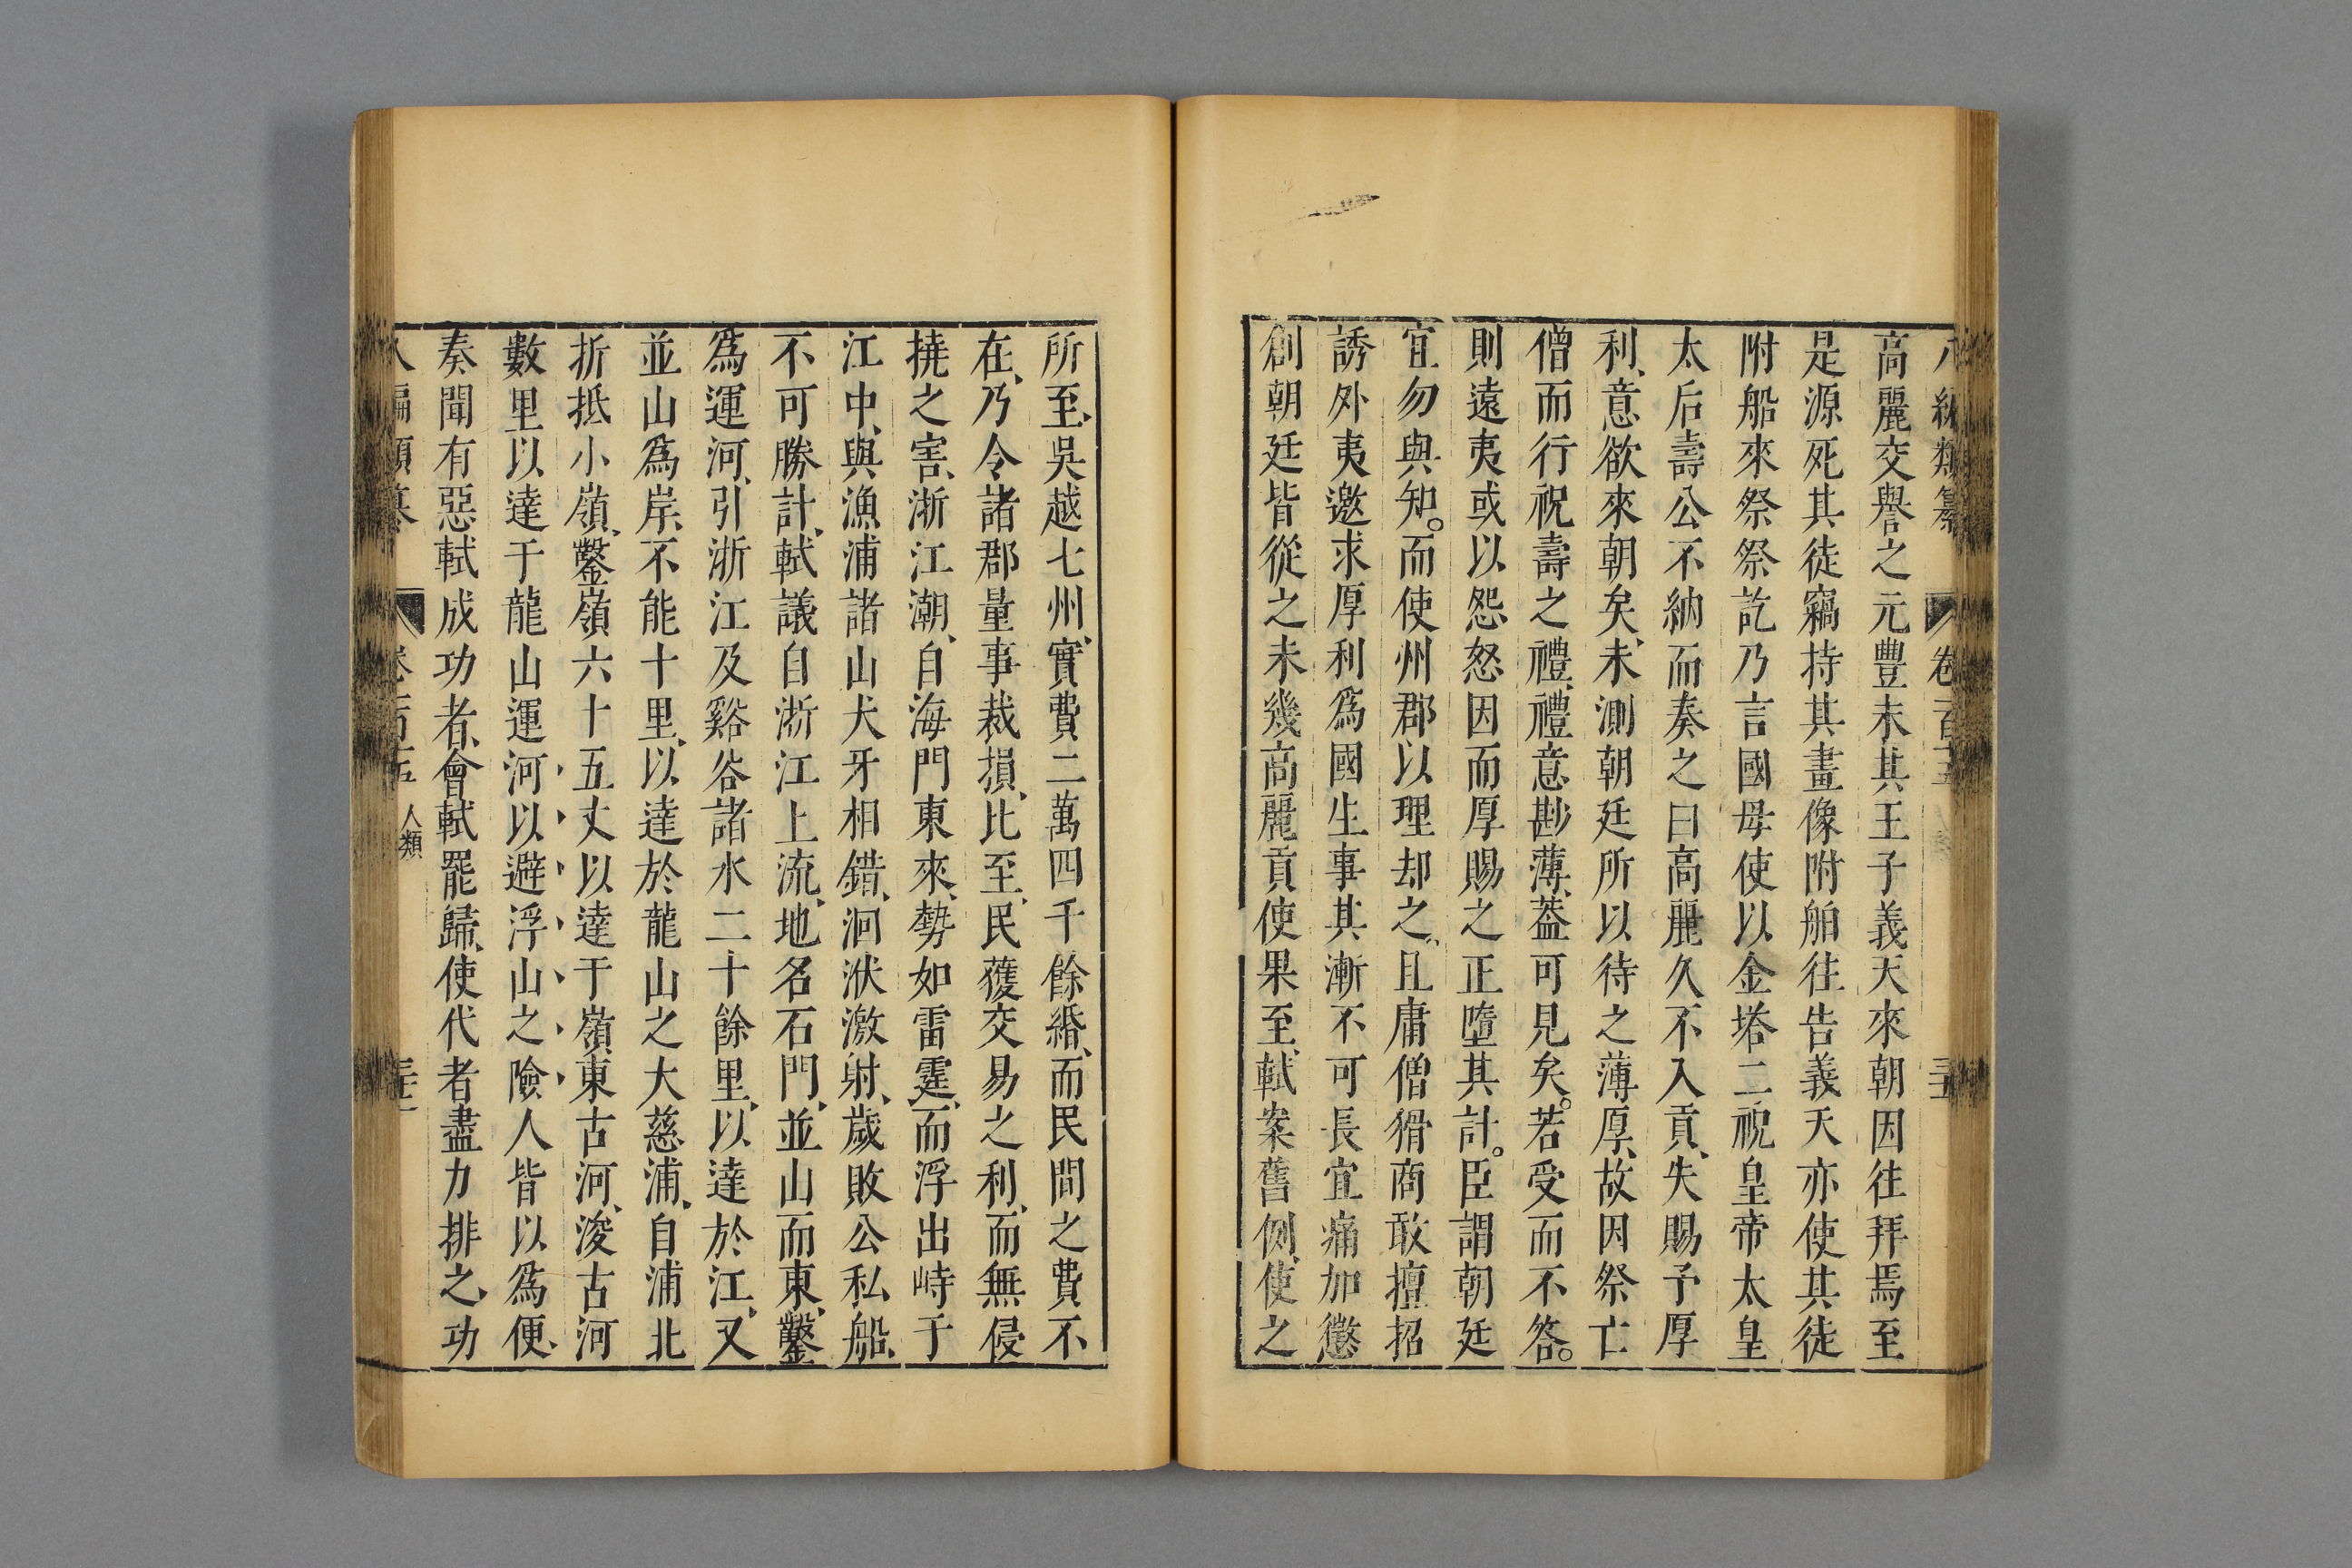 類纂 卷百十五
高麗交譽之元豐末其王子義天來朝因往拜焉至
是源死其徒竊持其畫像附舶往告義天亦使其徒
附船來祭祭訖乃言國母使以金塔二祝皇帝太皇
太后壽公不納而奏之曰高麗久不入貢、失賜予厚
利、意欲來朝矣、未測朝廷所以待之薄厚、故因祭亡
僧而行祝壽之禮、禮意尠薄、葢可見矣。若受而不答。
則遠夷或以怨怒因而厚賜之正墮其計。臣謂朝廷
宜勿與知。而使州郡以理却之、且庸僧猾商敢擅招
誘外夷邀求厚利為國生事其漸不可長宜痛加懲
創朝廷皆從之未幾高麗貢使果至、軾案舊例、使之
所至、吳越七州、實費二萬四千餘緡、而民間之費不
在、乃令諸郡量事裁損、比至、民獲交易之利、而無侵
撓之害、浙江潮、自海門東來、勢如雷霆、而浮山峙于
江中、與漁浦諸山犬牙相錯、洄洑激射、歲敗公私船、
不可勝計、軾議自浙江上流、地名石門、並山而東、鑿
為運河、引浙江及谿谷諸水二十餘里、以達於江、又
並山為岸、不能十里、以達於龍山之大慈浦、自浦北
折抵小嶺、鑿嶺六十五丈以達于嶺東古河、浚古河
數里以達于龍山運河以避浮山之險人皆以為便、
奏聞有惡軾成功者、會軾罷歸、使代者盡力排之、功
人類